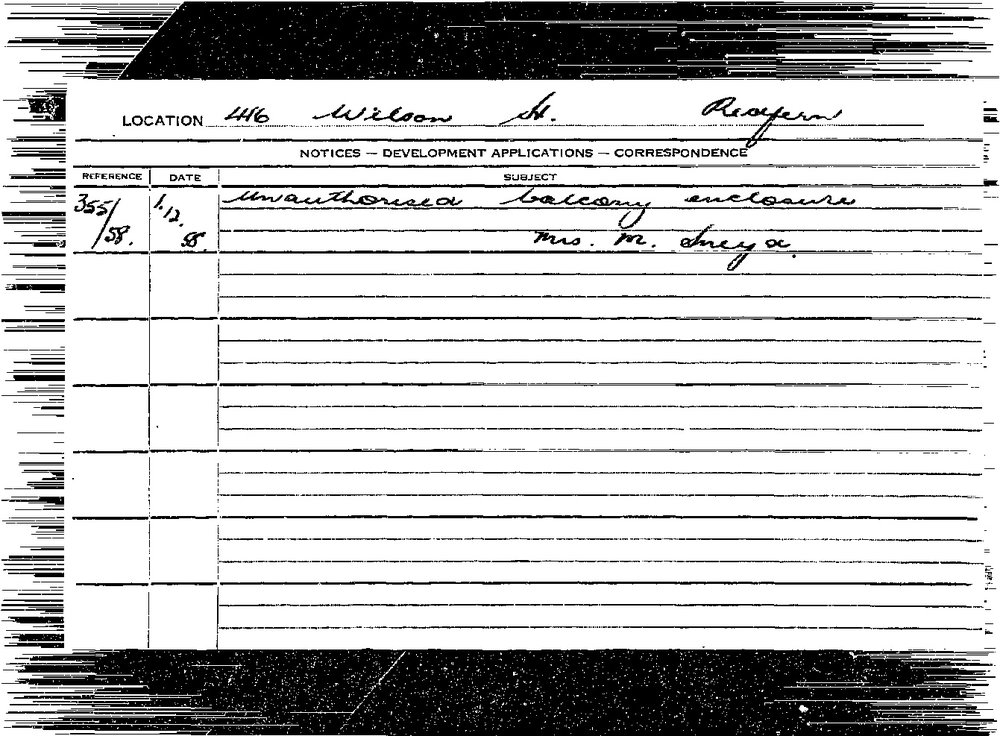 LOCATION 446 Wilson St. Redfern
NOTICES — DEVELOPMENT APPLICATIONS — CORRESPONDENCE
REFERENCE DATE SUBJECT
355/ 1.12. Unauthorised balcony enclosure
58. 58. Mrs. M.